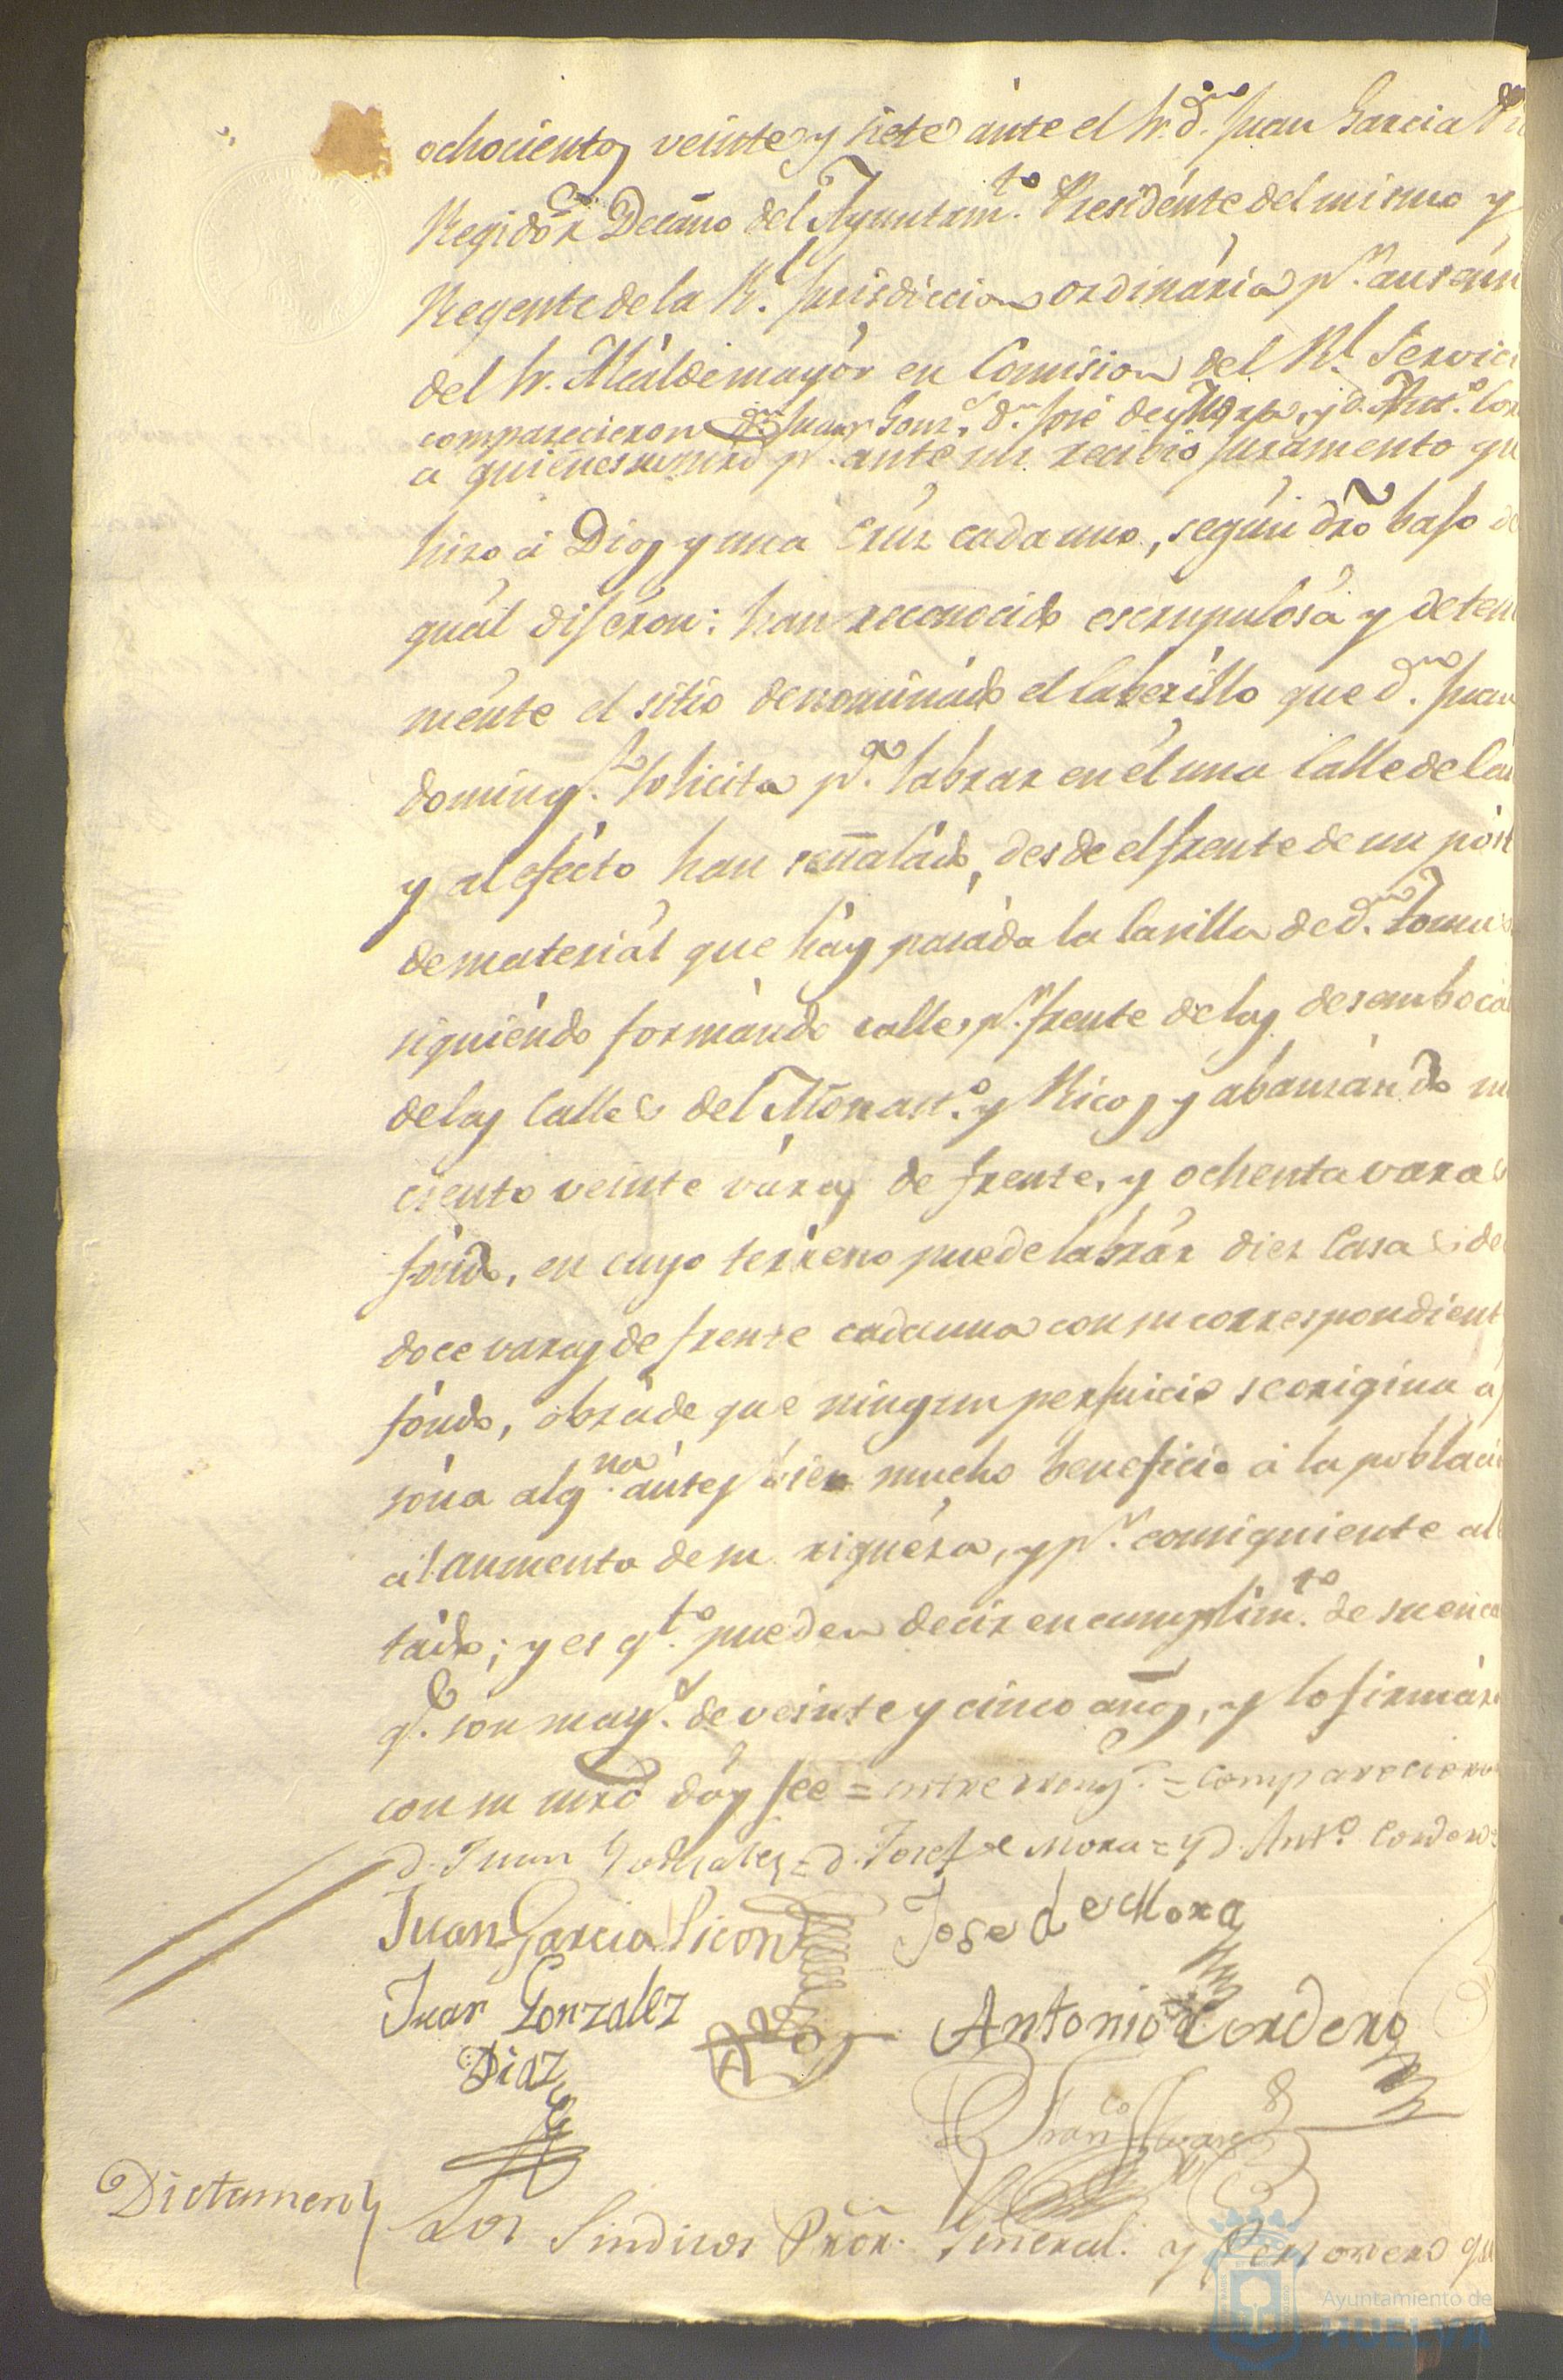 ochocientos veinte y siete ante el Sr. dn. Juan Garcia
Regidor Decano del Ayuntamto. Presidente del mismo y
Regente de la Rl. Jurisdiccion ordinaria pr. ausen
del Sr. Alcalde mayor en Comision del Rl. Servici
comparecieron dn. Juan Gonz. dn. José de Mora, y d. Anto. Cor
a quienes su mrd pr. ante mi recibio juramento qu
hizo á Dios y una Cruz cada uno, según dro bajo de
quál dijéron: han reconocido escrupulosa y deten
mente el sitio denominado el laberillo que dn. Juan
doming. solicita pa. labrar en él una Calle de Ca
y al efécto han señalado, desde el frente de un post
de materiál que háy pasada la Casilla de dn. Tomas
siguiéndo formándo calle, pr. frente de las desemboca
de las Calles del Monasto. y Ricos y abanzándo
ciento veinte váras de frente, y ochenta varas
fóndo, en cuyo terréno puede labrár diez Casas de
doce varas de frente cada una con su correspondient
fóndo, obráde que ningun perjuicio se origina a
sóna algna. ántes bien mucho beneficio á la poblaci
ál aumento de su riquéza, y pr. consiguiente al
tado; y es qto. pueden decir en cumplimto. de su enca
qe. son mays. de veinte y cinco años, y lo firmár
con su mrd dóy fee = entre reng.s = comparecieron
d. Juan Gonzalez = d. Josef de Mora = y d. Anto. Cordero
Juan Garcia Picon Jose de Mora
Juan Gonzalez Antonio Cordero
Diaz
Franco. Alvarez
Dictamen
Los Sindicos Pror. General. y Personero qu
Ayuntamiento de
HUELVA